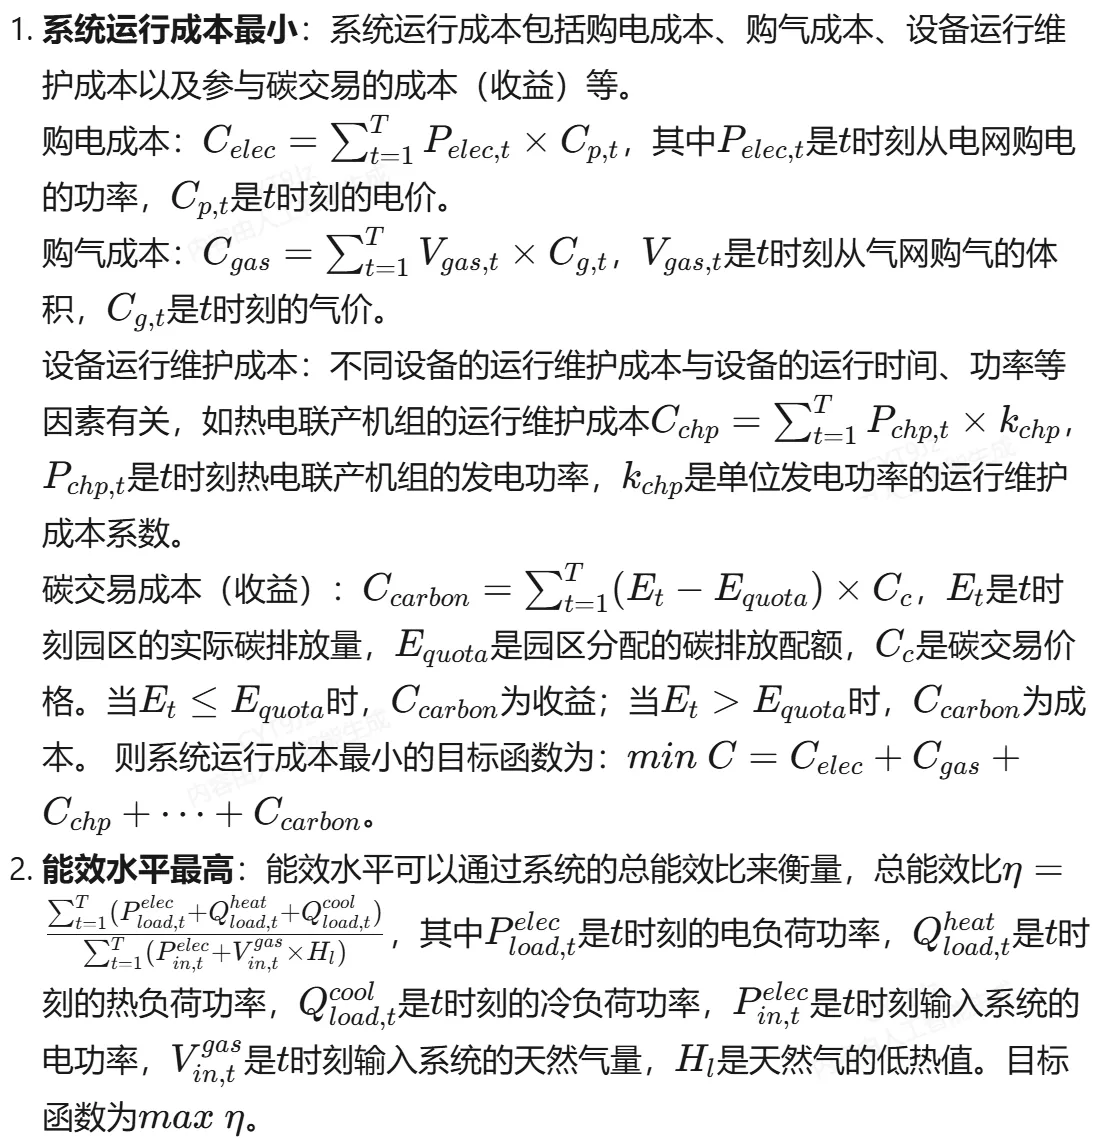 1. 系统运行成本最小：系统运行成本包括购电成本、购气成本、设备运行维
护成本以及参与碳交易的成本（收益）等。
购电成本：$C_{elec} = \sum_{t=1}^{T} P_{elec,t} \times C_{p,t}$，其中$P_{elec,t}$是$t$时刻从电网购电
的功率，$C_{p,t}$是$t$时刻的电价。
购气成本：$C_{gas} = \sum_{t=1}^{T} V_{gas,t} \times C_{g,t}$，$V_{gas,t}$是$t$时刻从气网购气的体
积，$C_{g,t}$是$t$时刻的气价。
设备运行维护成本：不同设备的运行维护成本与设备的运行时间、功率等
因素有关，如热电联产机组的运行维护成本$C_{chp} = \sum_{t=1}^{T} P_{chp,t} \times k_{chp}$，
$P_{chp,t}$是$t$时刻热电联产机组的发电功率，$k_{chp}$是单位发电功率的运行维护
成本系数。
碳交易成本（收益）：$C_{carbon} = \sum_{t=1}^{T} (E_t - E_{quota}) \times C_c$，$E_t$是$t$时
刻园区的实际碳排放量，$E_{quota}$是园区分配的碳排放配额，$C_c$是碳交易价
格。当$E_t \leq E_{quota}$时，$C_{carbon}$为收益；当$E_t > E_{quota}$时，$C_{carbon}$为成
本。 则系统运行成本最小的目标函数为：$min\ C = C_{elec} + C_{gas} +$
$C_{chp} + \cdots + C_{carbon}$。
2. 能效水平最高：能效水平可以通过系统的总能效比来衡量，总能效比$\eta =$
$\frac{\sum_{t=1}^{T}(P_{load,t}^{elec}+Q_{load,t}^{heat}+Q_{load,t}^{cool})}{\sum_{t=1}^{T}(P_{in,t}^{elec}+V_{in,t}^{gas} \times H_l)}$，其中$P_{load,t}^{elec}$是$t$时刻的电负荷功率，$Q_{load,t}^{heat}$是$t$时
刻的热负荷功率，$Q_{load,t}^{cool}$是$t$时刻的冷负荷功率，$P_{in,t}^{elec}$是$t$时刻输入系统的
电功率，$V_{in,t}^{gas}$是$t$时刻输入系统的天然气量，$H_l$是天然气的低热值。目标
函数为$max\ \eta$。